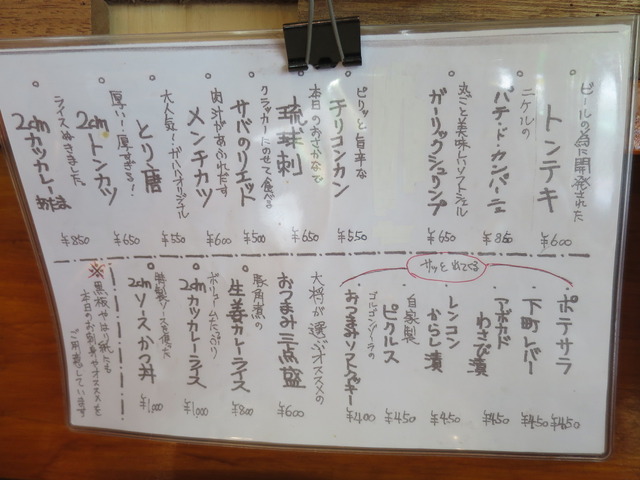 ビールの為に開発された
トンテキ
¥600
ニケルの
パテ・ド・カンパーニュ
¥850
丸ごと美味しいソフトシェル
ガーリックシュリンプ
¥650
ピリッと旨辛な
チリコンカン
¥550
本日のおさかなで
琉球刺
¥650
クラッカーにのせて食べる
サバのリエット
¥500
肉汁があふれだす
メンチカツ
¥600
大人気!ガリハリオリジナル
とり唐
¥550
厚い!厚すぎる!
2cmトンカツ
¥650
ライスぬきました
2cmカツカレー
¥850
サッと出てくる
ポテサラ
¥450
下町レバー
¥450
アボカドわさび漬
¥450
レンコンからし漬
¥450
自家製
ピクルス
¥450
ゴルゴンゾーラの
おつまみソフトクッキー
¥400
大将が選ぶオススメの
おつまみ三点盛
¥600
豚角煮の
生姜カレーライス
¥800
ボリュームたっぷり
2cmカツカレーライス
¥1,000
特製ソースを使った
2cmソースかつ丼
¥1,000
※黒板やはり紙にも
本日のお刺身やオススメを
ご用意しています